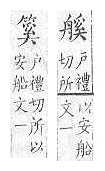 戶禮
切所
以安船
文一
戶禮切所以
安船文一